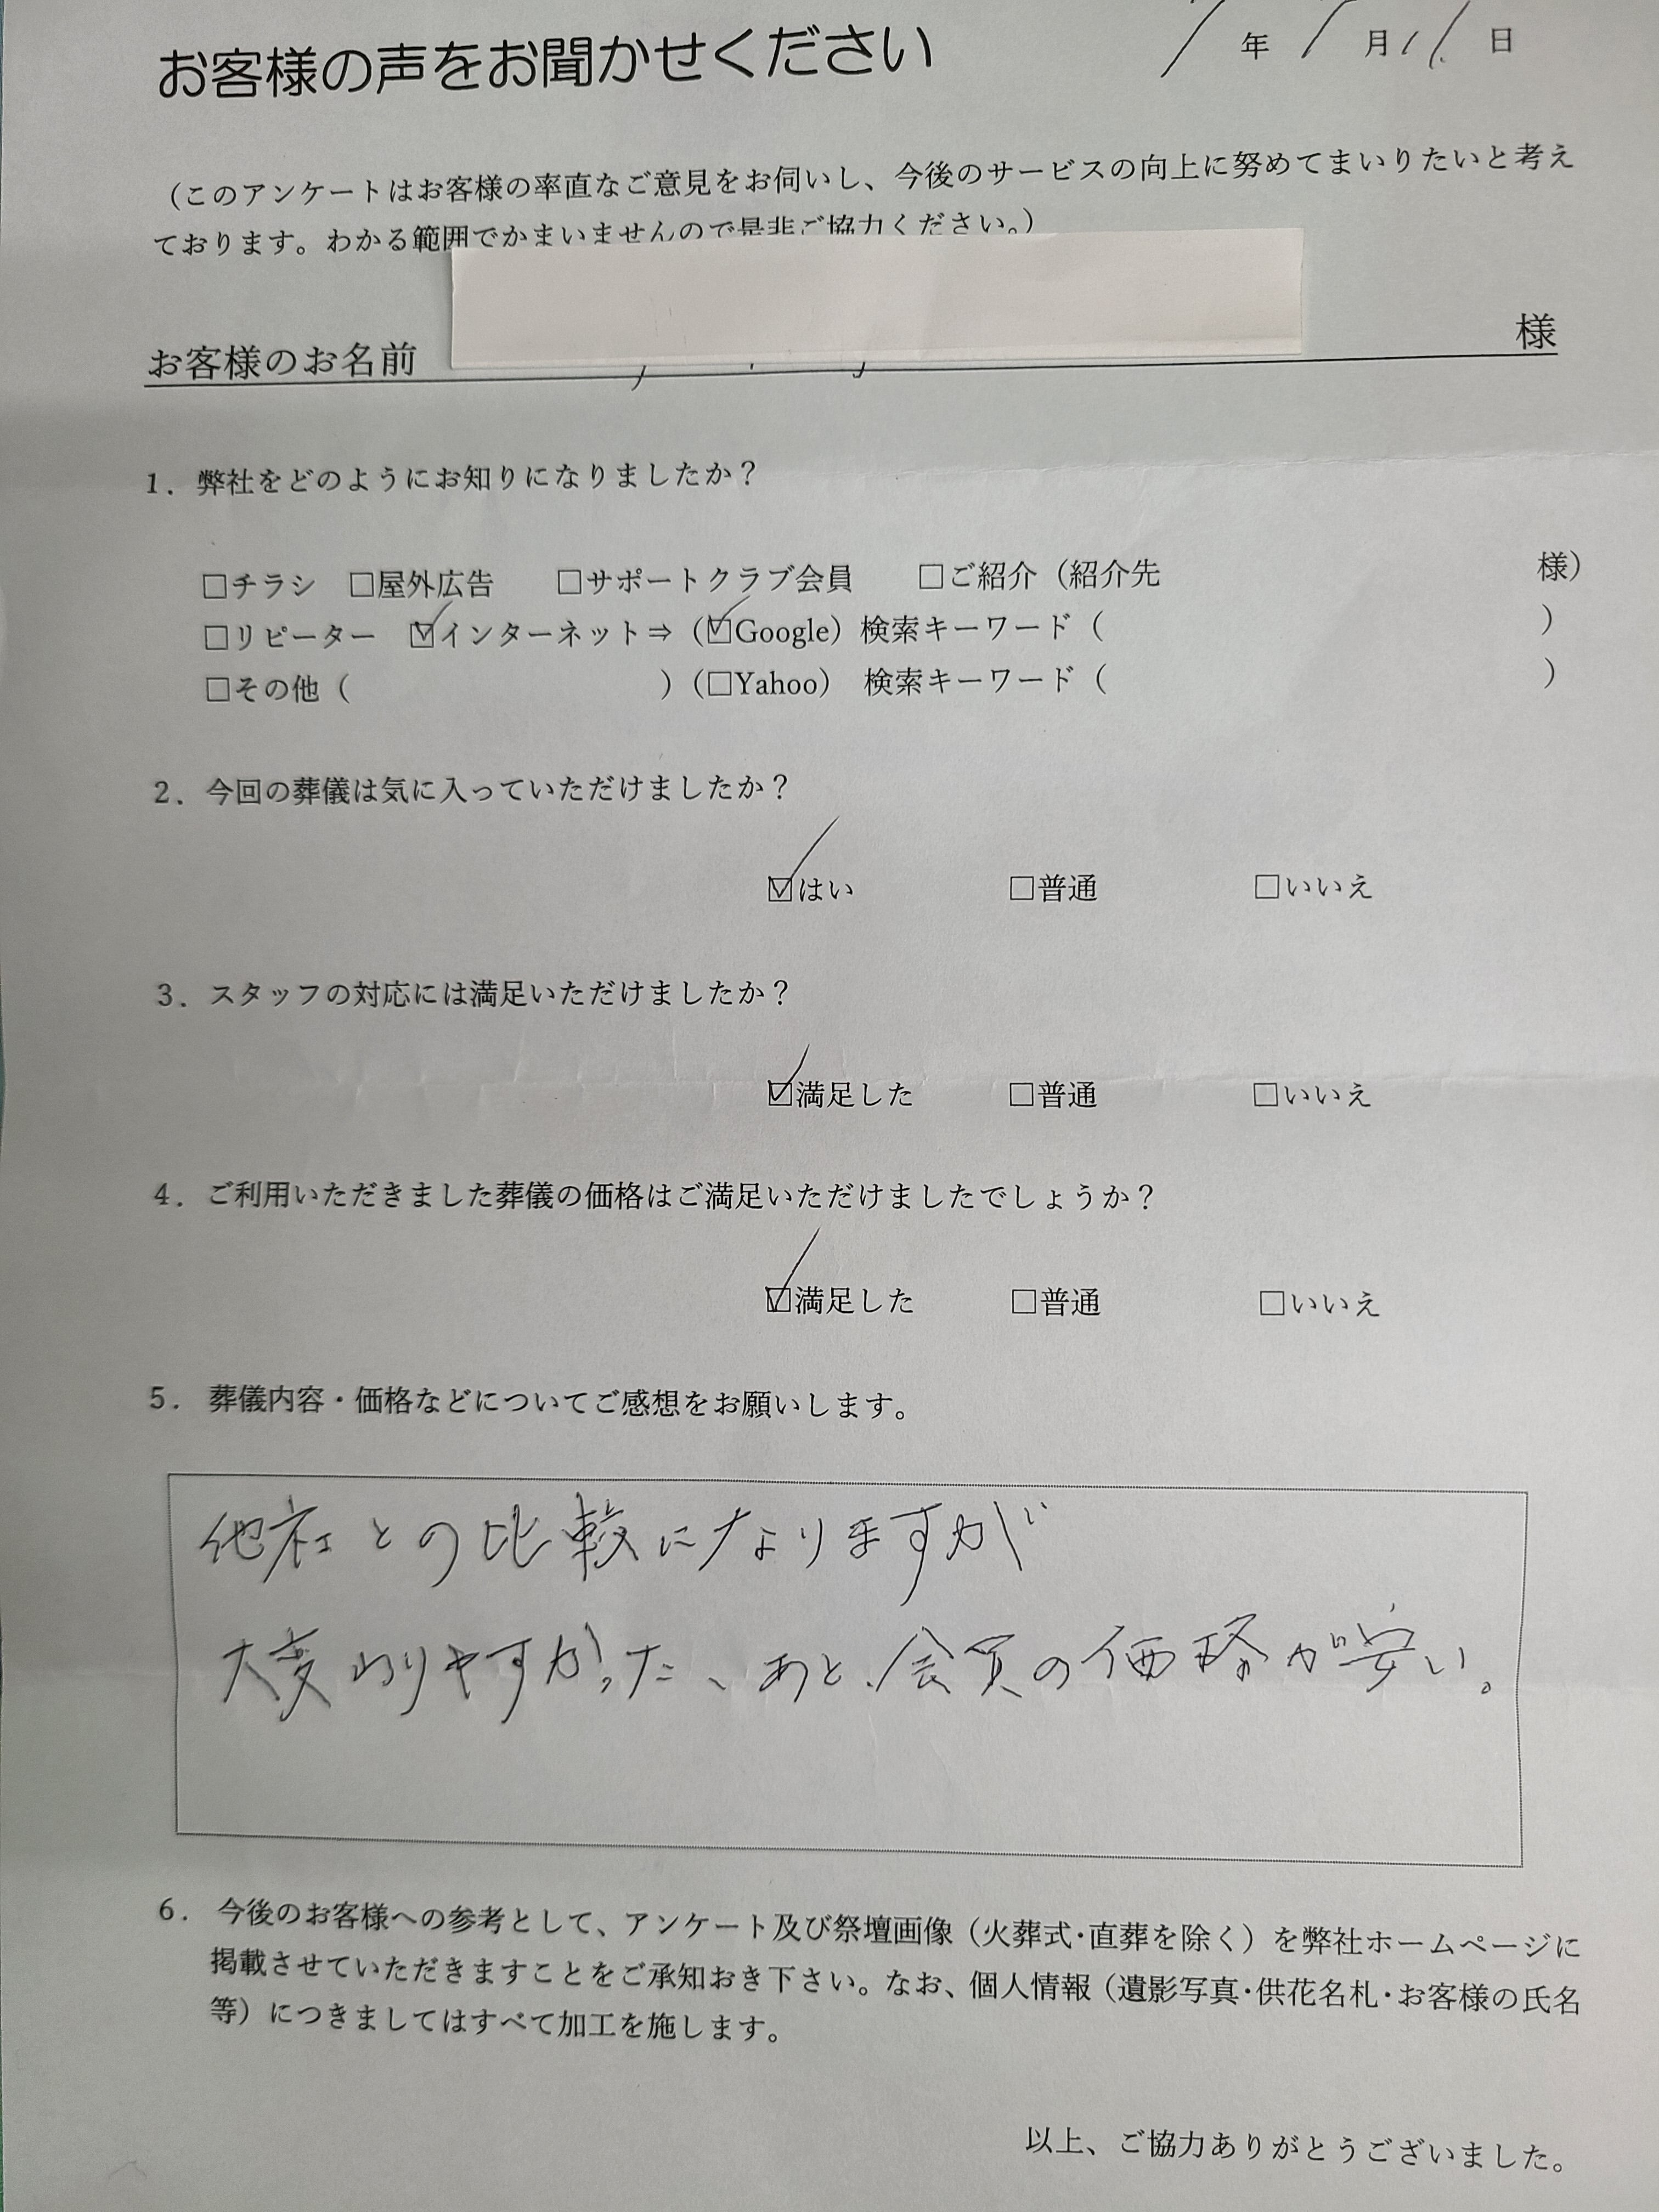 お客様の声をお聞かせください
年 月 日
（このアンケートはお客様の率直なご意見をお伺いし、今後のサービスの向上に努めてまいりたいと考え
ております。わかる範囲でかまいませんので是非ご協力ください。）
お客様のお名前 様
1．弊社をどのようにお知りになりましたか？
□チラシ □屋外広告 □サポートクラブ会員 □ご紹介（紹介先 様）
□リピーター ☑インターネット⇒（☑Google）検索キーワード（ ）
□その他（ ）（□Yahoo） 検索キーワード（ ）
2．今回の葬儀は気に入っていただけましたか？
☑はい □普通 □いいえ
3．スタッフの対応には満足いただけましたか？
☑満足した □普通 □いいえ
4．ご利用いただきました葬儀の価格はご満足いただけましたでしょうか？
☑満足した □普通 □いいえ
5． 葬儀内容・価格などについてご感想をお願いします。
他社との比較になりますが
大変わりやすかった、あと、会員の価格が安い。
6． 今後のお客様への参考として、アンケート及び祭壇画像（火葬式･直葬を除く）を弊社ホームページに
掲載させていただきますことをご承知おき下さい。なお、個人情報（遺影写真･供花名札･お客様の氏名
等）につきましてはすべて加工を施します。
以上、ご協力ありがとうございました。